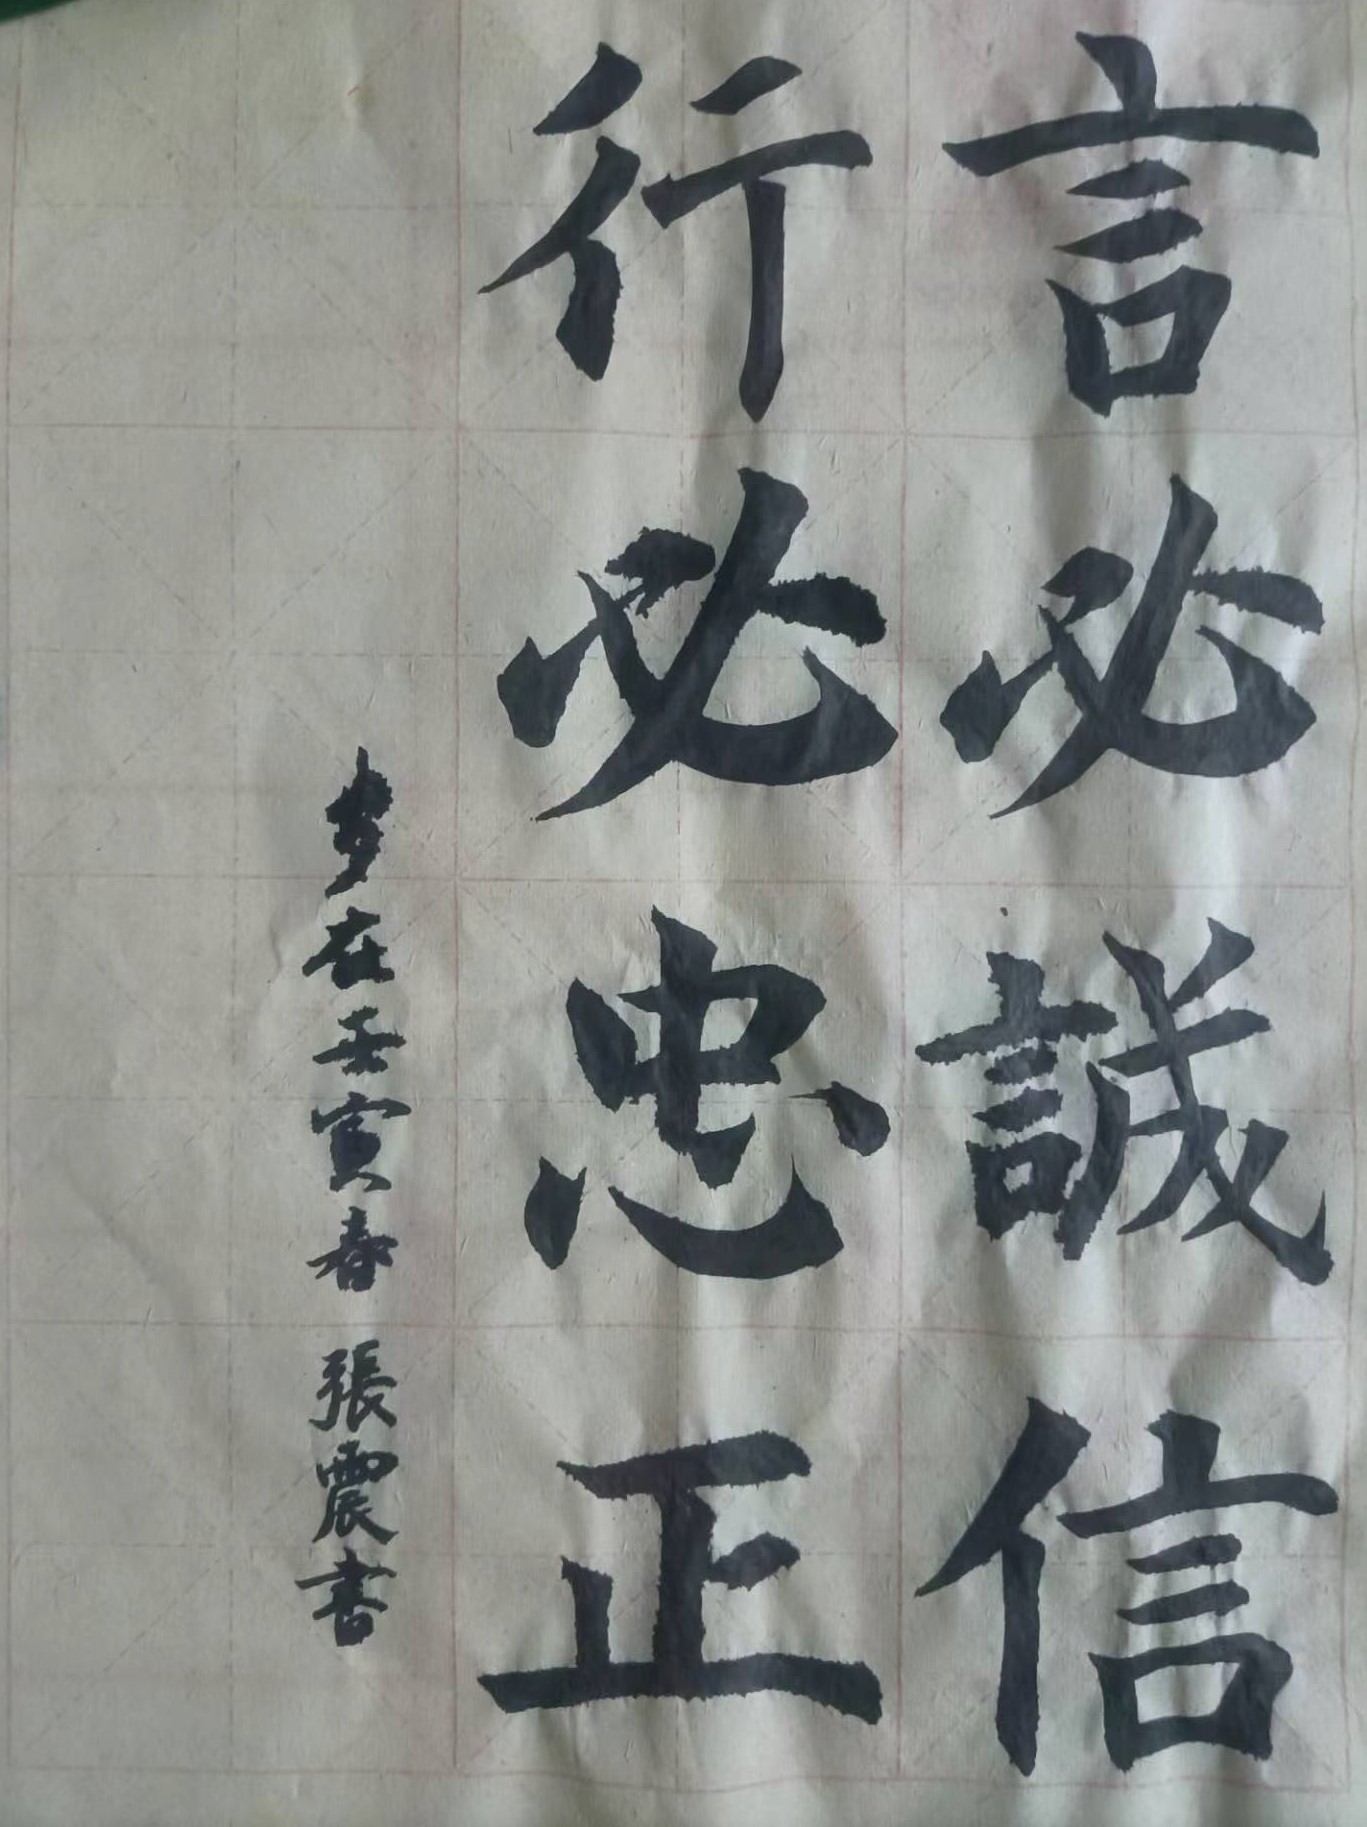 言必誠信
行必忠正
岁在壬寅春 張震書